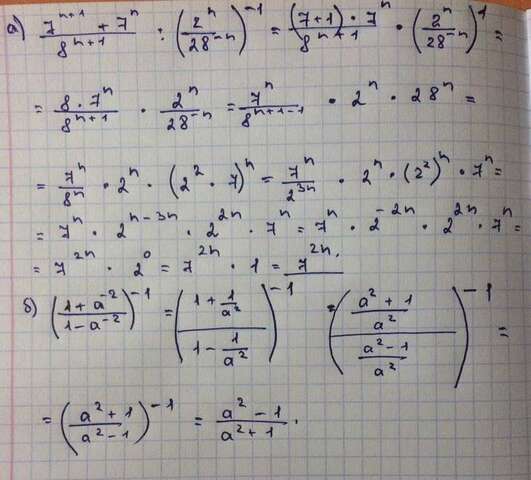 а) (7^(n+1) + 7^n)/(8^(n+1)) : (2^n/28^(-n))^(-1) = ((7+1)·7^n)/(8^(n+1)) · (2^n/28^(-n))^1 =
= (8·7^n)/(8^(n+1)) · 2^n/28^(-n) = 7^n/8^(n+1-1) · 2^n · 28^n =
= 7^n/8^n · 2^n · (2^2 · 7)^n = 7^n/2^(3n) · 2^n · (2^2)^n · 7^n =
= 7^n · 2^(n-3n) · 2^(2n) · 7^n = 7^n · 2^(-2n) · 2^(2n) · 7^n =
= 7^(2n) · 2^0 = 7^(2n) · 1 = 7^(2n).
б) ((1+a^(-2))/(1-a^(-2)))^(-1) = ((1+1/a^2)/(1-1/a^2))^(-1) = (((a^2+1)/a^2)/((a^2-1)/a^2))^(-1) =
= ((a^2+1)/(a^2-1))^(-1) = (a^2-1)/(a^2+1).